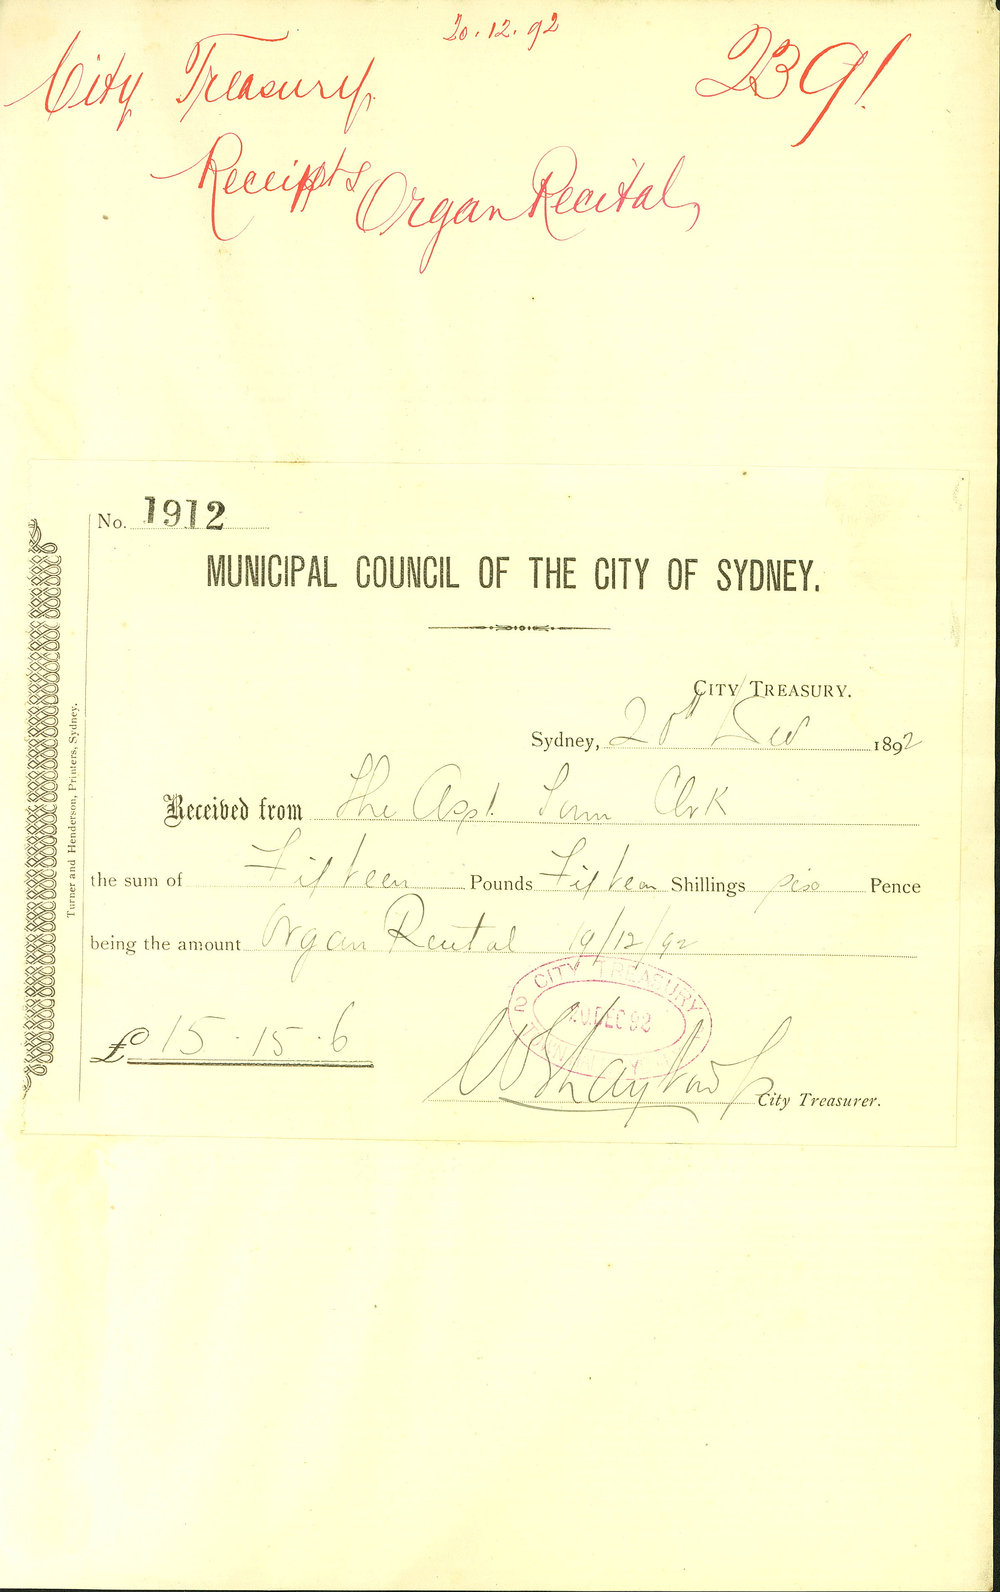 20.12.92
City Treasury
2391
Receipts Organ Recital
No. 1912
MUNICIPAL COUNCIL OF THE CITY OF SYDNEY.
CITY TREASURY.
Sydney, 20th Dec 1892
Received from The Asst. Town Clerk
the sum of Fifteen Pounds Fifteen Shillings six Pence
being the amount Organ Recital 19/12/92
CITY TREASURY
20.DEC 92
£ 15.15.6
City Treasurer.
Turner and Henderson, Printers, Sydney.